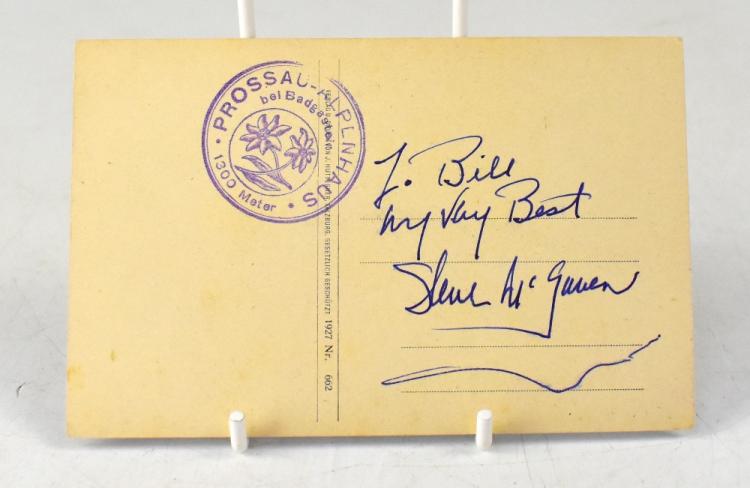 PROSSAU-ALPENHAUS
bei Badgastein
1300 Meter
SALZBURG. GESETZLICH GESCHÜTZT 1927 Nr. 662
To Bill
my Very Best
Steve McQueen